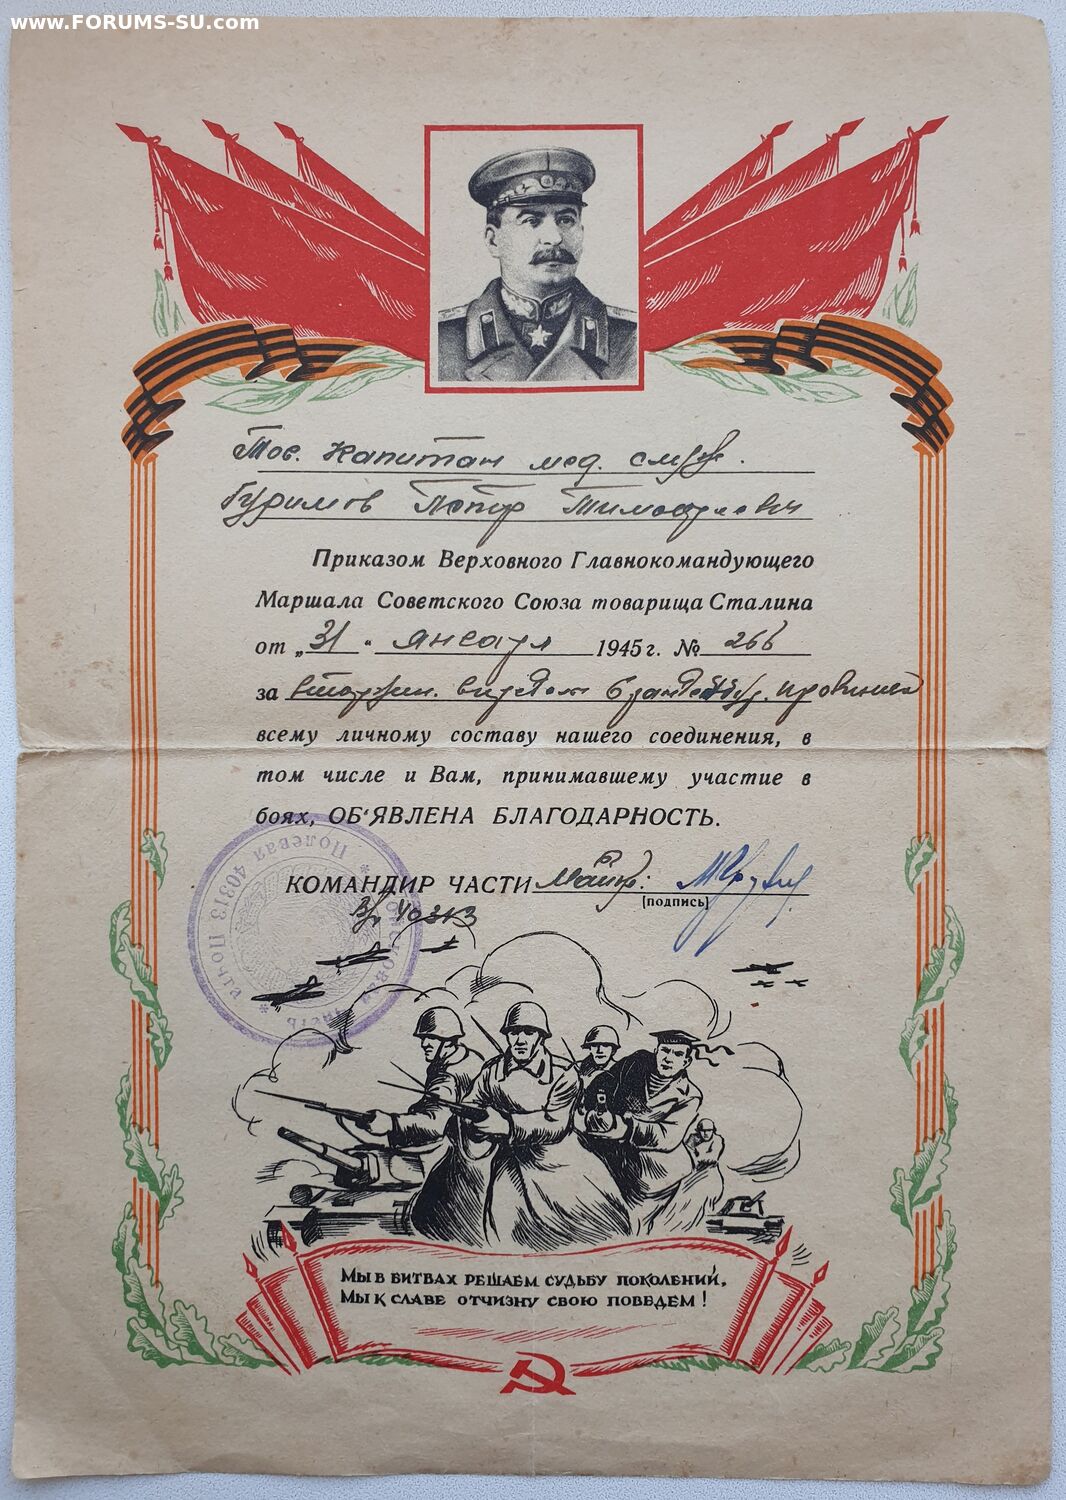 www.FORUMS-SU.com
Тов. Капитан мед. служ.
Гуримов Петр Тимофеевич
Приказом Верховного Главнокомандующего
Маршала Советского Союза товарища Сталина
от „31“ января 1945 г. № 266
за вторжен. в пределы бранденбур. провинции
всему личному составу нашего соединения, в
том числе и Вам, принимавшему участие в
боях, ОБ'ЯВЛЕНА БЛАГОДАРНОСТЬ.
КОМАНДИР ЧАСТИ Майор:
(подпись)
40313
Полевая 40313 Почта
МЫ В БИТВАХ РЕШАЕМ СУДЬБУ ПОКОЛЕНИЙ,
МЫ К СЛАВЕ ОТЧИЗНУ СВОЮ ПОВЕДЕМ!